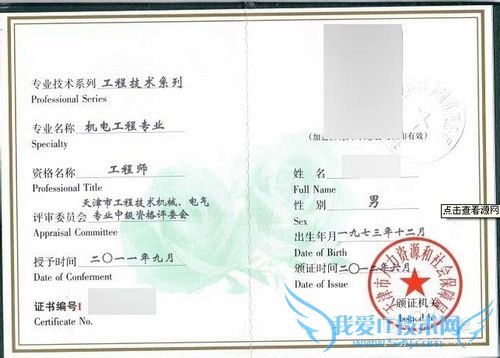 专业技术系列 工程技术系列
Professional Series
专业名称 机电工程专业
Specialty
资格名称 工程师
Professional Title
天津市工程技术机械、电气
评审委员会 专业中级资格评委会
Appraisal Committee
授予时间 二〇一一年九月
Date of Conferment
证书编号
Certificate No.
有效)
姓 名
Full Name
性 别 男
Sex
出生年月 一九七三年十二月
Date of Birth
颁证时间 二〇一二年六月
Date of Issue
颁证机关
Issued by
天津市人力资源和社会保障局
点击查看源网
我爱IT技术网